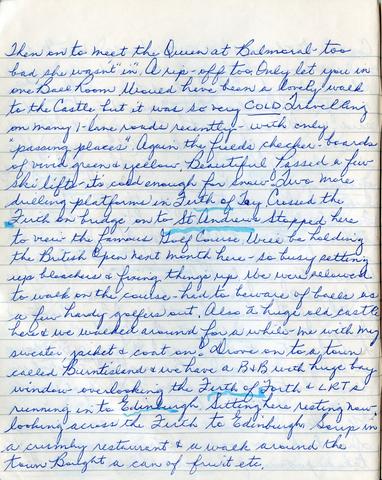 Then on to meet the Queen at Balmoral - too
bad, she wasn't "in". A rip-off too. Only let you in
one Ball Room. Would have been a lovely walk
to the Castle but it was so very COLD. Travelling
on many 1-lane roads recently - with only
"passing places". Again the fields checker-boards
of vivid green & yellow. Beautiful. Passed a few
ski lifts - it's cold enough for snow. Two more
drilling platforms in Firth of Tay. Crossed the
Firth on bridge on to St Andrews. Stopped here
to view the famous Golf Course. Will be holding
the British Open next month here - so busy setting
up bleachers & fixing things up. We were allowed
to walk on the course - had to beware of balls as
a few hardy golfers out. Also a huge old castle
here & we walked around for a while - me with my
sweater, jacket & coat on! Drove on to a town
called Burntisland & we have a B&B with huge bay
window - overlooking the Firth of Forth & LRT's
running in to Edinburgh. Sitting here resting now,
looking across the Firth to Edinburgh. Soup in
a crumby restaurant & a walk around the
town. Bought a can of fruit etc.